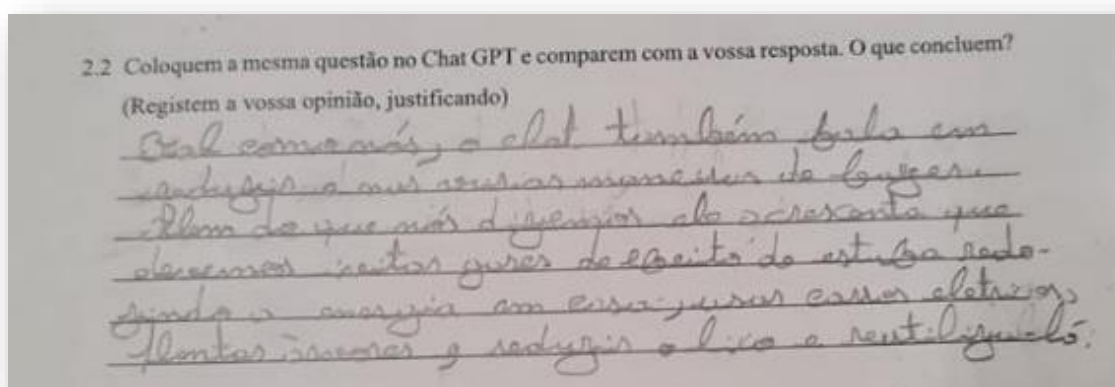 2.2 Coloquem a mesma questão no Chat GPT e comparem com a vossa resposta. O que concluem?
(Registem a vossa opinião, justificando)
Tal como nós, o chat também fala em
reduzir o as maneiras de
Alem do que nós dizemos ele acrescenta que
devemos gases de efeito de estufa redu-
zindo a energia em casa, usar carros eletricos,
Plantar árvores e reduzir o lixo e reutilizalo.